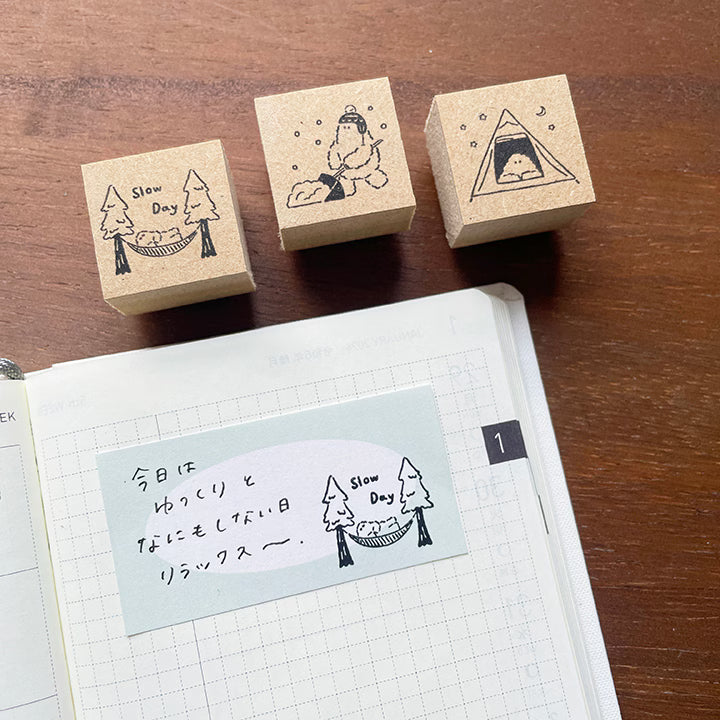 Slow
Day
EK
1
今日は
ゆっくりと
なにもしない日
リラックス〜.
Slow
Day